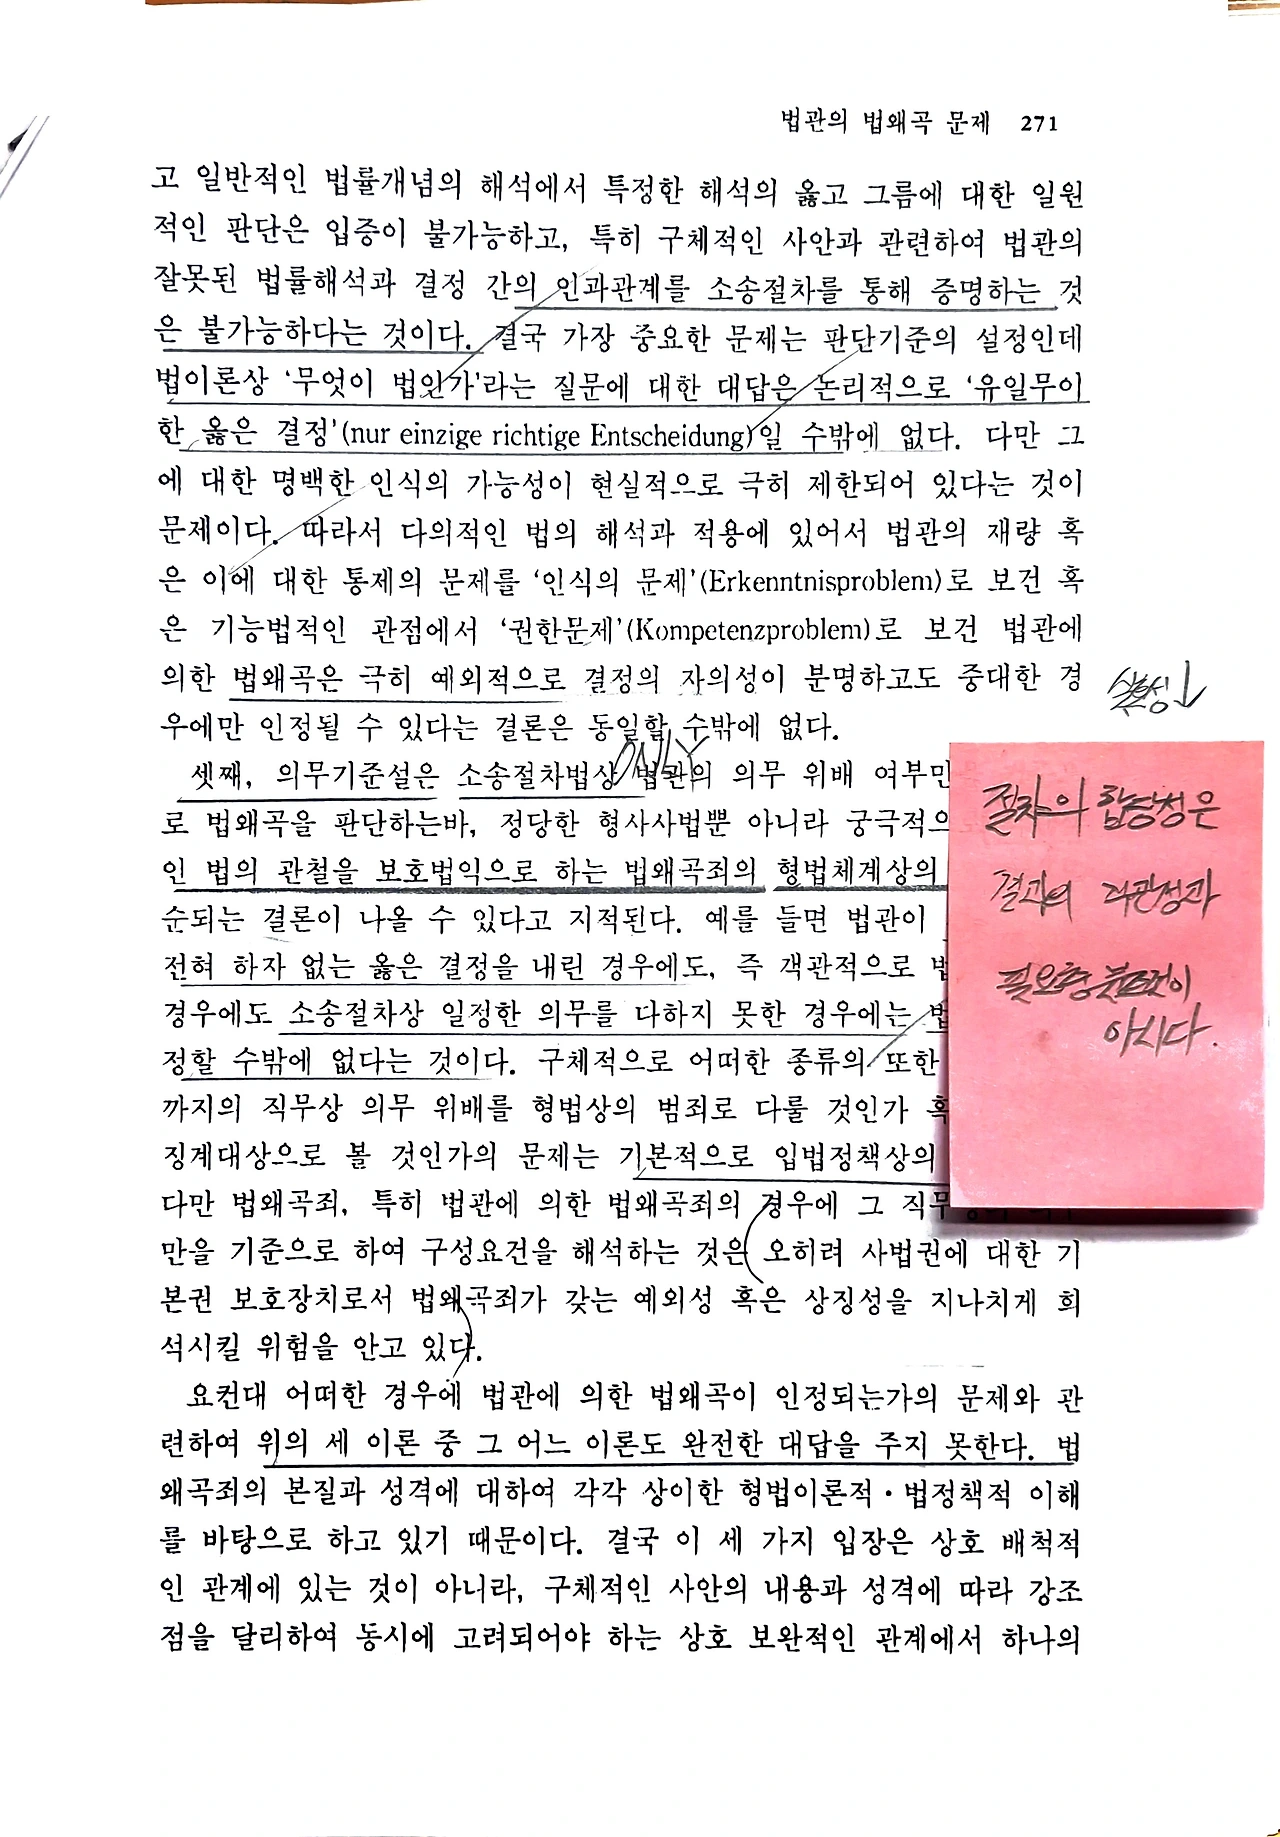 법관의 법왜곡 문제 271
고 일반적인 법률개념의 해석에서 특정한 해석의 옳고 그름에 대한 일원
적인 판단은 입증이 불가능하고, 특히 구체적인 사안과 관련하여 법관의
잘못된 법률해석과 결정 간의 인과관계를 소송절차를 통해 증명하는 것
은 불가능하다는 것이다. 결국 가장 중요한 문제는 판단기준의 설정인데
법이론상 ‘무엇이 법인가’라는 질문에 대한 대답은 논리적으로 ‘유일무이
한 옳은 결정’(nur einzige richtige Entscheidung)일 수밖에 없다. 다만 그
에 대한 명백한 인식의 가능성이 현실적으로 극히 제한되어 있다는 것이
문제이다. 따라서 다의적인 법의 해석과 적용에 있어서 법관의 재량 혹
은 이에 대한 통제의 문제를 ‘인식의 문제’(Erkenntnisproblem)로 보건 혹
은 기능법적인 관점에서 ‘권한문제’(Kompetenzproblem)로 보건 법관에
의한 법왜곡은 극히 예외적으로 결정의 자의성이 분명하고도 중대한 경
우에만 인정될 수 있다는 결론은 동일할 수밖에 없다.
ONLY
셋째, 의무기준설은 소송절차법상 법관의 의무 위배 여부만
로 법왜곡을 판단하는바, 정당한 형사사법뿐 아니라 궁극적으
인 법의 관철을 보호법익으로 하는 법왜곡죄의 형법체계상의
순되는 결론이 나올 수 있다고 지적된다. 예를 들면 법관이
전혀 하자 없는 옳은 결정을 내린 경우에도, 즉 객관적으로 법
경우에도 소송절차상 일정한 의무를 다하지 못한 경우에는 법
정할 수밖에 없다는 것이다. 구체적으로 어떠한 종류의 또한
까지의 직무상 의무 위배를 형법상의 범죄로 다룰 것인가 혹
징계대상으로 볼 것인가의 문제는 기본적으로 입법정책상의
다만 법왜곡죄, 특히 법관에 의한 법왜곡죄의 경우에 그 직무
만을 기준으로 하여 구성요건을 해석하는 것은 오히려 사법권에 대한 기
본권 보호장치로서 법왜곡죄가 갖는 예외성 혹은 상징성을 지나치게 희
석시킬 위험을 안고 있다.
요컨대 어떠한 경우에 법관에 의한 법왜곡이 인정되는가의 문제와 관
련하여 위의 세 이론 중 그 어느 이론도 완전한 대답을 주지 못한다. 법
왜곡죄의 본질과 성격에 대하여 각각 상이한 형법이론적·법정책적 이해
를 바탕으로 하고 있기 때문이다. 결국 이 세 가지 입장은 상호 배척적
인 관계에 있는 것이 아니라, 구체적인 사안의 내용과 성격에 따라 강조
점을 달리하여 동시에 고려되어야 하는 상호 보완적인 관계에서 하나의
절차의 합당성은
결과의
필요충분조건이
아니다.